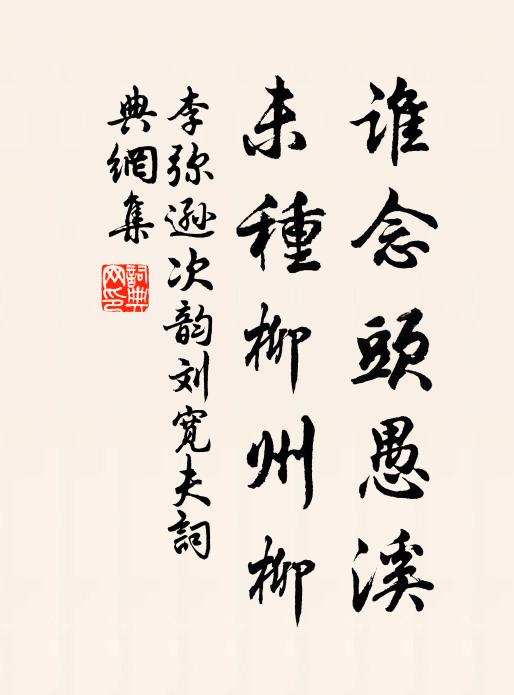 谁念頭愚溪
未種柳州柳
李弥遜次韵刘寛夫詞
典網集
詞典网印